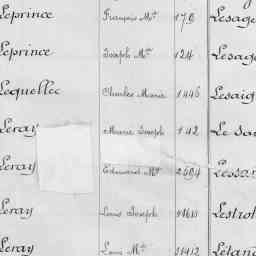 Leprince François Mie 176 Lesage
Leprince Joseph Mie 124 Lesage
Lequellec Charles Marie 1446 Lesaig
Leray Marie Joseph 142 Le Sa
Leray Edouard Mie 2604 Lessa
Leray Louis Joseph Lestro
Leray Louis Mie 11412 Létan